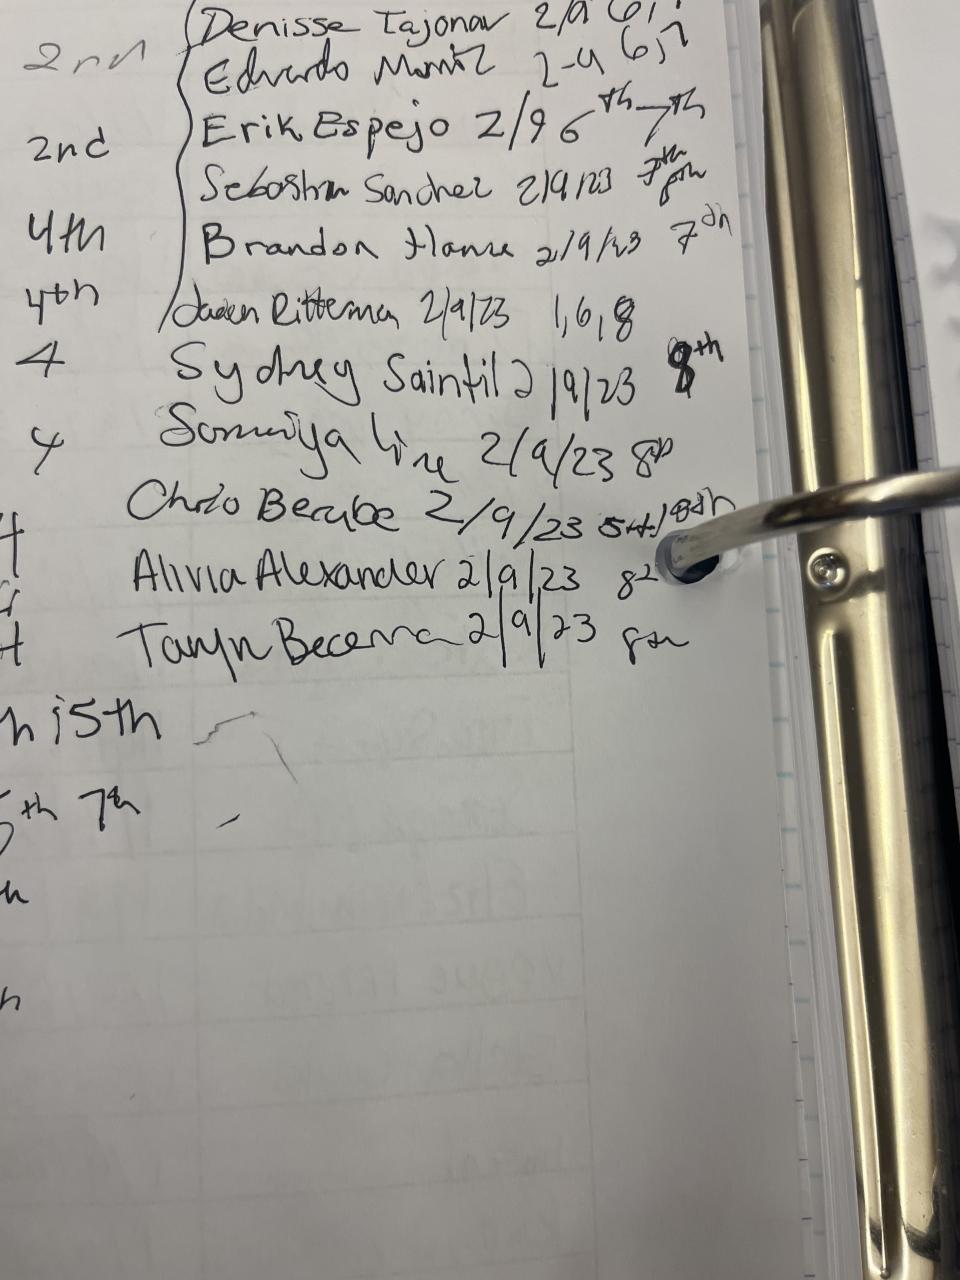 Denisse Tajonar 2/9 6,7
2nd
Eduardo 2-9 6,7
2nd Erik Espejo 2/9 6th 7th
Sebastian Sanchez 2/9/23 7th 8th
4th Brandon 2/9/23 7th
4th Jaden Ritterman 2/9/23 1,6,8
4 Sydney Saintil 2/9/23 8th
4 2/9/23 8th
Chris Berube 2/9/23 5th/8th
Alivia Alexander 2/9/23
Taryn Becerra 2/9/23 8th
h 5th
5th 7th